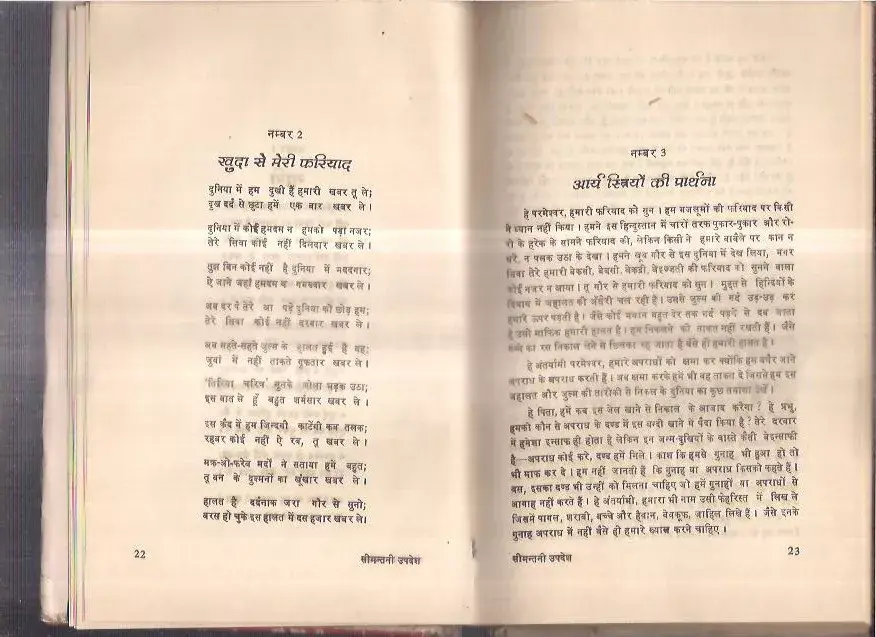 नम्बर 2
खुदा से मेरी फरियाद
दुनिया में हम दुखी हैं हमारी खबर तू ले;
दुख दर्द से छुटा हमें एक बार खबर ले।
दुनिया में कोई हमदम न हमको पड़ा नजर;
तेरे सिवा कोई नहीं दिलदार खबर ले।
तुझ बिन कोई नहीं है दुनिया में मददगार;
ऐ जाने जहाँ हमदम व गमख्वार खबर ले।
अब दर पे तेरे आ पड़े दुनिया को छोड़ हम;
तेरे सिवा कोई नहीं दरबार खबर ले।
अब सहते-सहते जुल्म के हालत हुई है यह;
जुबां में नहीं ताकते गुफतार खबर ले।
'त्रिया चरित्र' सुनके शोला भड़क उठा;
इस बात से हूँ बहुत शर्मसार खबर ले।
इस कैद में हम जिन्दगी काटेंगी कब तलक;
रहबर कोई नहीं ऐ रब, तू खबर ले।
मक्र-ओ-फरेब मर्दों ने सताया हमें बहुत;
तू बन के दुश्मनों का खूंखार खबर ले।
हालत है दर्दनाक जरा गौर से सुनो;
बरस हो चुके इस हालत में दस हजार खबर ले।
22
सीमन्तनी उपदेश
नम्बर 3
आर्य स्त्रियों की प्रार्थना
हे परमेश्वर, हमारी फरियाद को सुन। हम मजलूमों की फरियाद पर किसी
ने ध्यान नहीं किया। हमने इस हिन्दुस्तान में चारों तरफ पुकार-पुकार और रो-
रो के हरेक के सामने फरियाद की, लेकिन किसी ने हमारे वावैले पर कान न
धरे, न पलक उठा के देखा। हमने खूब गौर से इस दुनिया में देख लिया, मगर
सिवा तेरे हमारी बेकसी, बेबसी, बेकद्री, बेइज्जती की फरियाद को सुनने वाला
कोई नजर न आया। तू गौर से हमारी फरियाद को सुन। मुद्दत से हिन्दियों के
दिमाग में जहालत की अँधेरी चल रही है। उससे जुल्म की गर्द उड़-उड़ कर
हमारे ऊपर पड़ती है। जैसे कोई मकान बहुत देर तक गर्द पड़ने से दब जाता
है उसी माफिक हमारी हालत है। हम निकलने की ताकत नहीं रखतीं हैं। जैसे
का रस निकाल लेने से छिलका रह जाता है वैसे ही हमारी हालत है।
हे अंतर्यामी परमेश्वर, हमारे अपराधों को क्षमा कर क्योंकि हम बगैर जाने
अपराध के अपराध करती हैं। अब क्षमा करके हमें भी वह ताकत दे जिससे हम इस
जहालत और जुल्म की तारीकी से निकल के दुनिया का कुछ तमाशा देखें।
हे पिता, हमें कब इस जेल खाने से निकाल के आजाद करेगा? हे प्रभु,
हमको कौन से अपराध के दण्ड में इस बन्दी खाने में पैदा किया है? तेरे दरबार
में हमेशा इन्साफ ही होता है लेकिन इन जन्म-दुखियों के वास्ते कैसी बेइन्साफी
है—अपराध कोई करे, दण्ड हमें मिले। काश कि हमसे गुनाह भी हुआ हो तो
भी माफ कर दे। हम नहीं जानती हैं कि गुनाह या अपराध किसको कहते हैं।
बस, इसका दण्ड भी उन्हीं को मिलना चाहिए जो हमें गुनाहों या अपराधों से
आगाह नहीं करते हैं। हे अंतर्यामी, हमारा भी नाम उसी फेहरिस्त में लिख ले
जिसमें पागल, शराबी, बच्चे और हैवान, बेवकूफ, जाहिल लिखे हैं। जैसे इनके
गुनाह अपराध में नहीं वैसे ही हमारे ख्याल करने चाहिए।
सीमन्तनी उपदेश
23